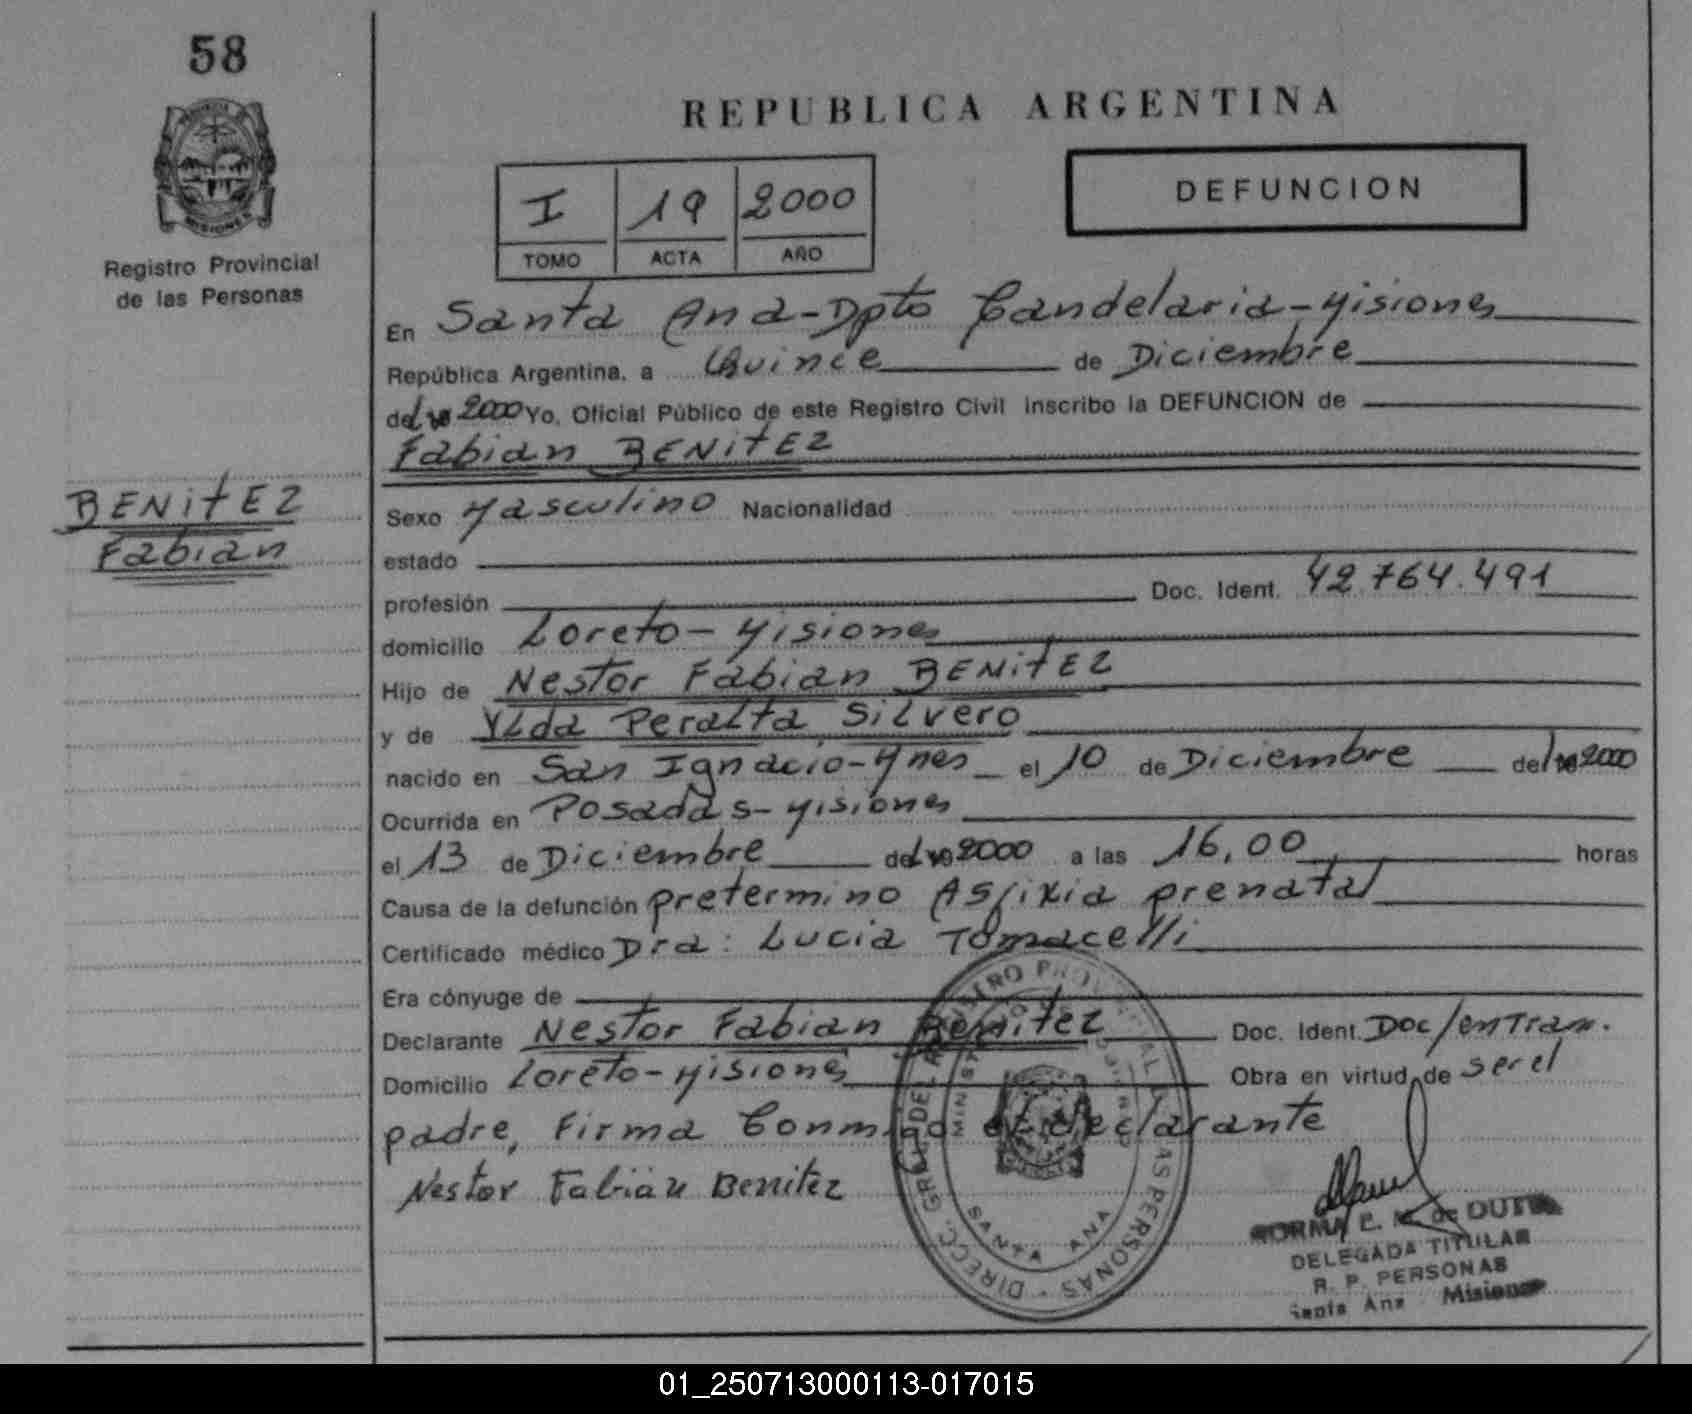 58
MISIONES
Registro Provincial
de las Personas
BENITEZ
Fabian
REPUBLICA ARGENTINA
I 19 2000
TOMO ACTA AÑO
DEFUNCION
En Santa Ana-Dpto Candelaria-Misiones
República Argentina, a Quince de Diciembre
del 2000 Yo, Oficial Público de este Registro Civil inscribo la DEFUNCION de
Fabian BENITEZ
Sexo Masculino Nacionalidad
estado
profesión Doc. Ident. 42.764.491
domicilio Loreto-Misiones
Hijo de Nestor Fabian BENITEZ
y de YLda Peralta Silvero
nacido en San Ignacio-Mnes el 10 de Diciembre del 2000
Ocurrida en Posadas-Misiones
el 13 de Diciembre del 2000 a las 16,00 horas
Causa de la defunción pretermino Asfixia prenatal
Certificado médico Dra: Lucia Tomacelli
Era cónyuge de
Declarante Nestor Fabian Benitez Doc. Ident. Doc/entram.
Domicilio Loreto-Misiones Obra en virtud de ser el
padre, Firma Conmigo el declarante
Nestor Fabián Benitez
DIRECC. GRAL DEL REGISTRO PROVINCIAL DE LAS PERSONAS
SANTA ANA
NORMA E. M. de DUTRA
DELEGADA TITULAR
R. P. PERSONAS
Santa Ana Misiones
01_250713000113-017015